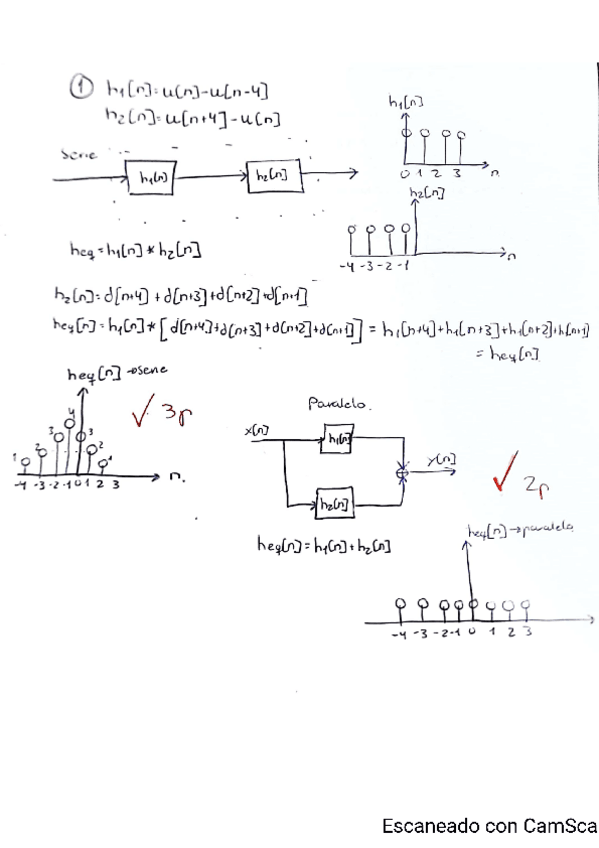 ① h₁[n]=u[n]-u[n-4]
h₂[n]=u[n+4]-u[n]
h₁[n]
0 1 2 3 n
serie
h₁[n] h₂[n]
h₂[n]
-4 -3 -2 -1 n
heq=h₁[n]*h₂[n]
h₂[n]=d[n+4]+d[n+3]+d[n+2]+d[n+1]
heq[n]=h₁[n]*[d[n+4]+d[n+3]+d[n+2]+d[n+1]] = h₁[n+4]+h₁[n+3]+h₁[n+2]+h₁[n+1]
= heq[n]
heq[n]→serie
1 2 3 4 3 2 1
-4 -3 -2 -1 0 1 2 3 n.
✓ 3p
Paralelo.
x[n] h₁[n] y[n]
h₂[n]
✓ 2p
heq[n]=h₁[n]+h₂[n]
heq[n]→paralelo
-4 -3 -2 -1 0 1 2 3
Escaneado con CamSca